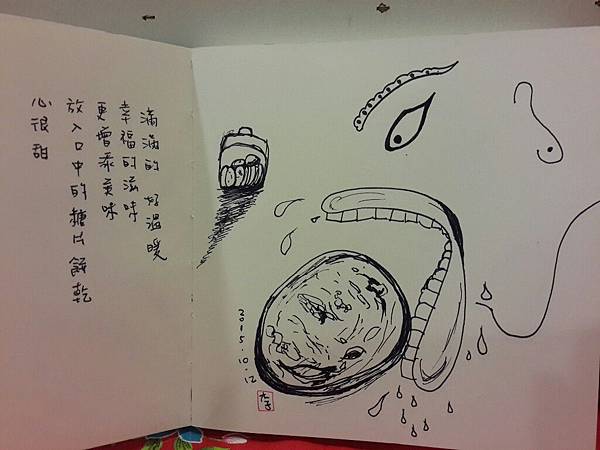 滿滿的 好溫暖
幸福的滋味
更增添美味
放入口中的糖片餅乾
心很甜
2015.10.12